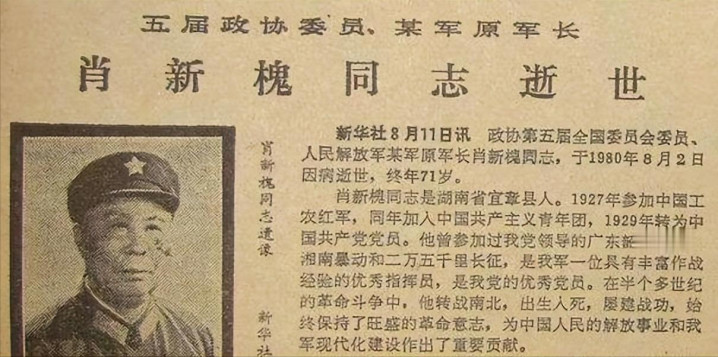 五届政协委员、某军原军长
肖新槐同志逝世
肖新槐同志遗像
新华社
新华社8月11日讯 政协第五届全国委员会委员、
人民解放军某军原军长肖新槐同志，于1980年8月2日
因病逝世，终年71岁。
肖新槐同志是湖南省宜章县人。1927年参加中国工
农红军，同年加入中国共产主义青年团，1929年转为中
国共产党党员。他曾参加过我党领导的广东
湘南暴动和二万五千里长征，是我军一位具有丰富作战
经验的优秀指挥员，是我党的优秀党员。在半个多世纪
的革命斗争中，他转战南北，出生入死，屡建战功，始
终保持了旺盛的革命意志，为中国人民的解放事业和我
军现代化建设作出了重要贡献。